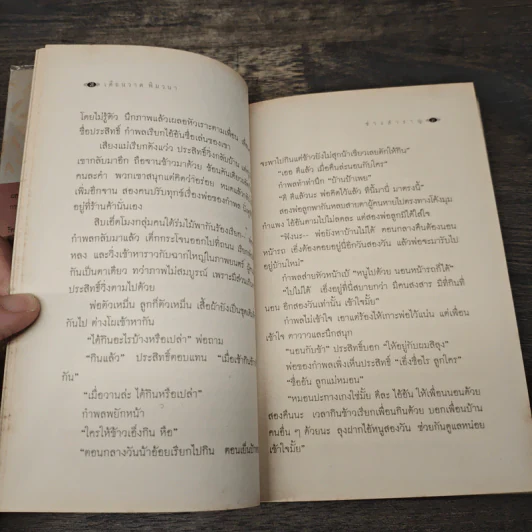 เดือนวาด พิมวนา
โดยไม่รู้ตัว นึกภาพแล้วเผลอหัวเราะตามเพื่อน
ชื่อประสิทธิ์ กำพลเรียกไอ้ยิ้นชื่อเล่นของเขา
เสียงแม่เรียกดังแว่ว ประสิทธิ์วิ่งกลับบ้าน
เขากลับมาอีก ถือจานข้าวมาด้วย ช้อนคันเดียว
คนละคำ พวกเขาสนุกแต่คิดว่าอร่อย หมดแล้ว
เพิ่มอีกจาน สองคนปรับทุกข์เรื่องพ่อของกำพล
อยู่ที่ร้านค้านั่นเอง
สิบเอ็ดโมงกลุ่มคนใต้ร่มไม้พากันร้องเรียก
กำพลกลับมาแล้ว เด็กกระโจนออกไปที่ถนน เรียก
หลง และวิ่งเข้าหาราวกับฉากใหญ่ในภาพยนตร์
กันเป็นตาเดียว ทว่าภาพไม่สมบูรณ์ เพราะมี
ประสิทธิ์วิ่งตามไปด้วย
พ่อตัวเหม็น ลูกก็ตัวเหม็น เสื้อผ้ายังเป็นชุดเดิม
กันไป ต่างโผเข้าหากัน
“ได้กินอะไรบ้างหรือเปล่า” พ่อถาม
“กินแล้ว” ประสิทธิ์ตอบแทน “เมื่อเช้ากิน
กัน”
“เมื่อวานล่ะ ได้กินหรือเปล่า”
กำพลพยักหน้า
“ใครให้ข้าวเอ็งกิน หือ”
“ตอนกลางวันน้าอ้อยเรียกไปกิน ตอนเย็น
ช่างสำราญ
จะพาไปกินแต่ข้าวยังไม่สุกน้าเขียวเลยตักให้กิน”
“เออ ดีแล้ว เมื่อคืนล่ะนอนกับใคร”
กำพลทำท่านึก “บ้านป้าเพย”
“ดี ดีแล้วนะ พ่อคิดไว้แล้ว ทีนี้มานี่ มาตรงนี้”
สองพ่อลูกพากันหลบสายตาผู้คนหายไปตรงทางโค้งมุม
กำแพง ไอ้ยิ้นตามไปไม่ลดละ แต่สองพ่อลูกมิได้ใส่ใจ
“ฟังนะ– พ่อยังหาบ้านไม่ได้ ตอนกลางคืนต้องนอน
หน้ารถ เอ็งต้องคอยอยู่นี่อีกวันสองวัน แล้วพ่อจะมารับไป
อยู่บ้านใหม่”
กำพลส่ายหัวหน้าเบ้ “หนูไปด้วย นอนหน้ารถก็ได้”
“ไปไม่ได้ เอ็งอยู่ที่นี่สบายกว่า มีคนสงสาร มีที่กินที่
นอน อีกสองวันเท่านั้น เข้าใจมั้ย”
กำพลไม่เข้าใจ เอาแต่ร้องไห้เกาะพ่อไว้แน่น แต่เพื่อน
เข้าใจ ตาวาวและนึกสนุก
“นอนกับข้า” ประสิทธิ์บอก “ให้อยู่กับผมสิลุง”
พ่อของกำพลเพิ่งเห็นประสิทธิ์ “เอ็งชื่อไร ลูกใคร”
“ชื่อยิ้น ลูกแม่หมอน”
“หมอนปะทางเกงใช่มั้ย ดีละ ไอ้ยิ้น ให้เพื่อนนอนด้วย
สองคืนนะ เวลากินข้าวเรียกเพื่อนกินด้วย บอกเพื่อนบ้าน
คนอื่น ๆ ด้วยนะ ลุงฝากไอ้หนูสองวัน ช่วยกันดูแลหน่อย
เข้าใจมั้ย”